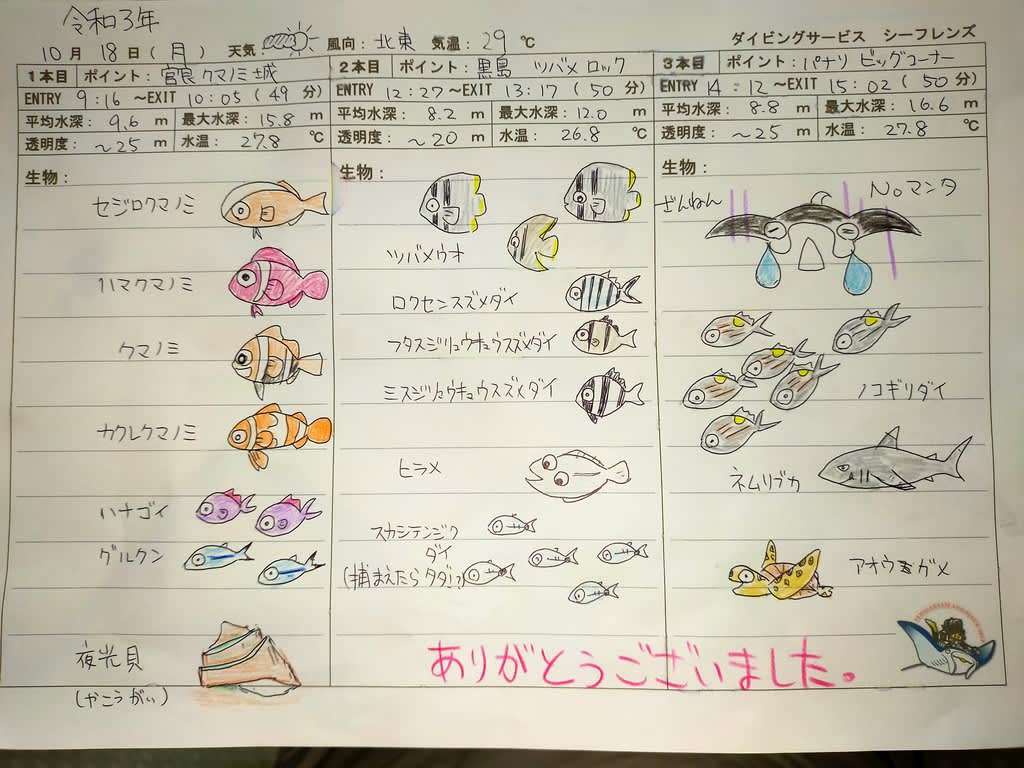 令和3年
10月 18日(月) 天気 風向:北東 気温:29℃ ダイビングサービス シーフレンズ
1本目 ポイント:宮良クマノミ城
ENTRY 9:16 ~EXIT 10:05 (49分)
平均水深: 9.6 m 最大水深: 15.8 m
透明度: ~25 m 水温: 27.8 ℃
生物:
セジロクマノミ
ハマクマノミ
クマノミ
カクレクマノミ
ハナゴイ
グルクン
夜光貝
(やこうがい)
2本目 ポイント:黒島 ツバメロック
ENTRY 12:27 ~EXIT 13:17 (50分)
平均水深: 8.2 m 最大水深: 12.0 m
透明度: ~20 m 水温: 26.8 ℃
生物:
ツバメウオ
ロクセンスズメダイ
フタスジリュウキュウスズメダイ
ミスジリュウキュウスズメダイ
ヒラメ
スカシテンジク
ダイ
(捕まえたらタダ!?)
3本目 ポイント:パナリ ビッグコーナー
ENTRY 14:12 ~EXIT 15:02 (50分)
平均水深: 8.8 m 最大水深: 16.6 m
透明度: ~25 m 水温: 27.8 ℃
生物:
ざんねん Noマンタ
ノコギリダイ
ネムリブカ
アオウミガメ
ありがとうございました。